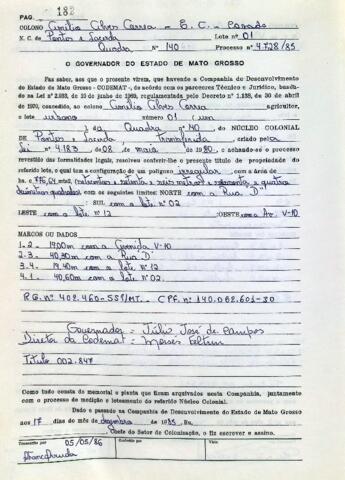 182
PAG.
COLONO Cirilio Alves Correa - E. C. - Casado
N. C. de Pontes e Lacerda Lote nº 01
Quadra Nº 140 Processo nº 4.728/85
O GOVERNADOR DO ESTADO DE MATO GROSSO
Faz saber, aos que o presente virem, que havendo a Companhia de Desenvolvimento
do Estado de Mato Grosso - CODEMAT -, de acordo com os pareceres Técnico e Jurídico, basea-
do na Lei nº 2.883, de 10 de junho de 1969, regulamentada pelo Decreto nº 1.138, de 30 de abril
de 1970, concedido, ao colono Cirilio Alves Correa agricultor,
o lote urbano número 01 (um
) da Quadra nº 140 do NÚCLEO COLONIAL
DE Pontes e Lacerda, transferida criado pela
Lei nº 4.183 de 08 de maio de 1980, e achando-se o processo
revestido das formalidades legais, resolveu conferir-lhe o presente título de propriedade do
referido lote, o qual tem a configuração de um polígono irregular, com a área de
ha. e 776,64 mts2, (setecentos e setenta e seis metros e sessenta e quatro
decímetros quadrados com os seguintes limites: NORTE com a Rua "D"
: SUL com o lote nº 02
LESTE com o lote nº 12 :OESTE com a Av. V-10
MARCOS OU DADOS
1. 2. - 19,00m com a Avenida V-10
2. 3. - 40,30m com a Rua "D"
3. 4. - 19,40m com o lote nº 12
4. 1. - 40,60m com o lote nº 02
R.G. nº 402.460-SSP/MT. CPF. nº 140.062.606-30
Governador = Júlio José de Campos
Diretor da Codemat = Moisés Feltrin
Título 002.847
Como tudo consta do memorial e planta que ficam arquivados nesta Companhia, juntamente
com o processo de medição e loteamento do referido Núcleo Colonial.
Dado e passado na Companhia de Desenvolvimento do Estado de Mato Grosso
aos 17 dias do mês de dezembro de 1985, Eu,
Chefe do Setor de Colonização, o fiz escrever e assino.
Transcrito por 05/05/86 Conferido por Visto